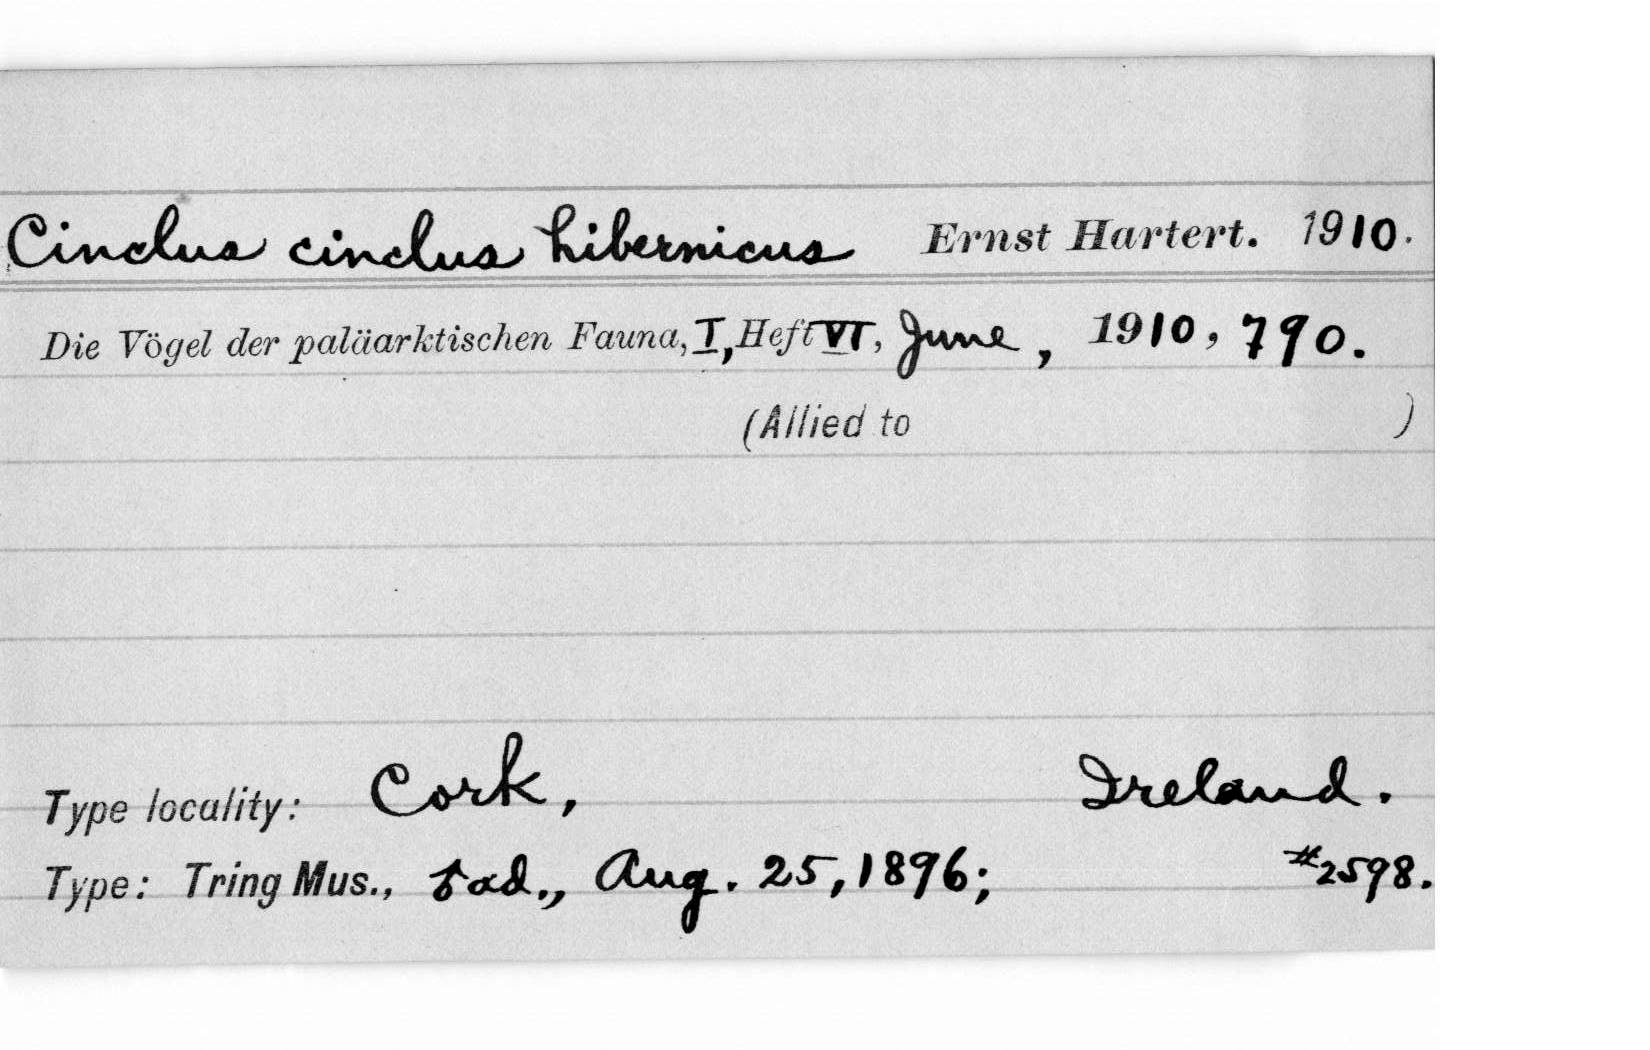 Cinclus cinclus hibernicus Ernst Hartert. 1910.
Die Vögel der paläarktischen Fauna, I, Heft VI, June, 1910, 790.
(Allied to )
Type locality: Cork, Ireland.
Type: Tring Mus., ad., Aug. 25, 1896; #2598.